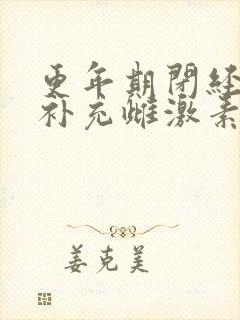 更年期闭经
补充雌激素
姜克美